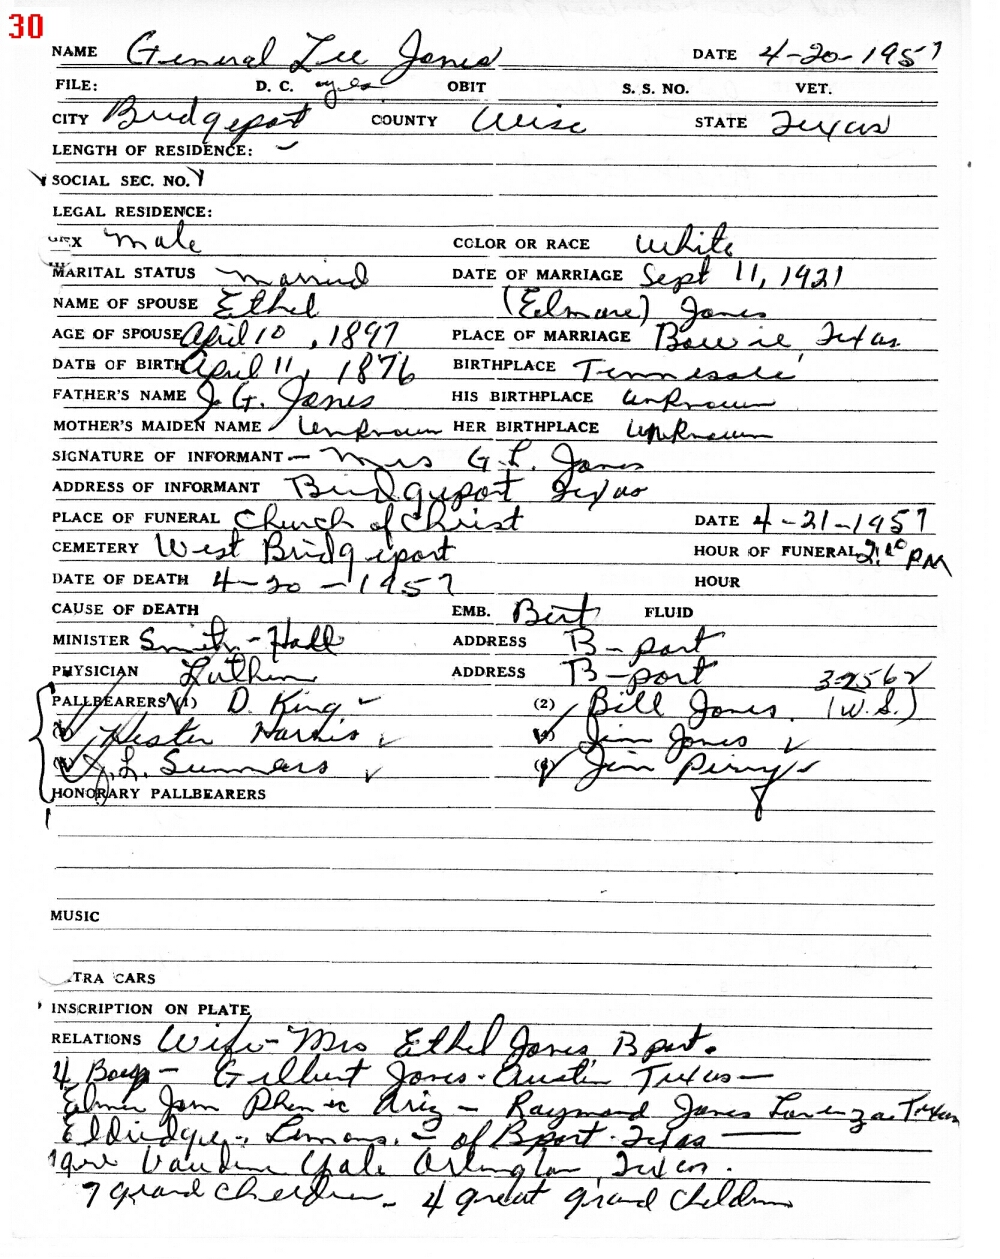 30
NAME General Lee Jones DATE 4-20-1957
FILE: D. C. OBIT S. S. NO. VET.
CITY Bridgeport COUNTY Wise STATE Texas
LENGTH OF RESIDENCE: -
SOCIAL SEC. NO.
LEGAL RESIDENCE:
SEX Male COLOR OR RACE White
MARITAL STATUS Married DATE OF MARRIAGE Sept 11, 1921
NAME OF SPOUSE Ethel (Elmore) Jones
AGE OF SPOUSE April 10, 1897 PLACE OF MARRIAGE Bowie, Texas
DATE OF BIRTH April 11, 1876 BIRTHPLACE Tennessee
FATHER'S NAME J. G. Jones HIS BIRTHPLACE unknown
MOTHER'S MAIDEN NAME Unknown HER BIRTHPLACE unknown
SIGNATURE OF INFORMANT - Mrs G. L. Jones
ADDRESS OF INFORMANT Bridgeport Texas
PLACE OF FUNERAL Church of Christ DATE 4-21-1957
CEMETERY West Bridgeport HOUR OF FUNERAL PM
DATE OF DEATH 4-20-1957 HOUR
CAUSE OF DEATH EMB. Bert FLUID
MINISTER Smith-Hall ADDRESS B-port
PHYSICIAN ADDRESS B-port
PALLBEARERS (1) D. King (2) Bill Jones. (W.S.)
Hester Harris Jim Jones
J. L. Summers Jim Perry
HONORARY PALLBEARERS
MUSIC
TRA CARS
INSCRIPTION ON PLATE
RELATIONS Wife - Mrs Ethel Jones Bport.
4 Boys - Gilbert Jones - Austin Texas -
Elmer Ariz - Raymond Jones Texas
Eldridge - of Bport. Texas -
Arlington, Texas.
7 grand children - 4 great grand children